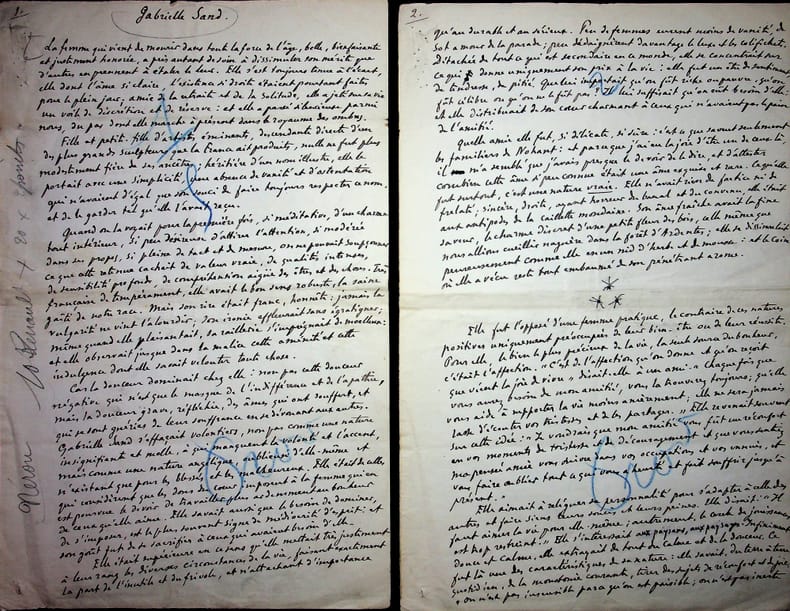 1.
Gabrielle Sand.
La femme qui vient de mourir dans toute la force de l'âge, belle, bienfaisante
et justement honorée, a pris autant de soin à dissimuler son mérite que
d'autres en prennent à étaler le leur. Elle s'est toujours tenue à l'écart,
elle dont l'âme si claire l'existence si droite étaient pourtant faites
pour le plein jour, amie de la retraite et de la solitude, elle a jeté sur sa vie
un voile de discrétion et de réserve : et elle a passé silencieuse parmi
nous, du pas dont elle marche à présent dans le royaume des ombres.
Fille et petite-fille d'artistes éminents, descendante directe d'un
des plus grands sculpteurs que la France ait produits, nulle ne fut plus
modestement fière de ses ancêtres ; héritière d'un nom illustre, elle le
portait avec une simplicité, une absence de vanité et d'ostentation
qui n'avaient d'égal que son souci de faire toujours respecter ce nom
et de le garder tel qu'elle l'avait reçu.
Quand on la voyait pour la première fois, si méditative, d'un charme
tout intérieur, si peu désireuse d'attirer l'attention, si modérée
dans ses propos, si pleine de tact et de mesure, on ne pouvait soupçonner
ce que cette retenue cachait de valeur vraie, de qualités intenses,
de sensibilité profonde, de compréhension aiguë des êtres et des choses. Très
française de tempérament, elle avait le bon sens robuste, la saine
gaîté de notre race. Mais son rire était franc, honnête : jamais la
vulgarité ne vint l'alourdir ; son ironie effleurait sans égratigner ;
même quand elle plaisantait, sa raillerie s'imprégnait de moelleux :
et elle observait jusque dans la malice cette aménité et cette
indulgence dont elle savait velouter toute chose.
Car la douceur dominait chez elle : non pas cette douceur
négation qui n'est que le masque de l'indifférence et de l'apathie,
mais, la douceur grave, réfléchie, des âmes qui ont souffert, et
qui se sont guéries de leur souffrance en se dévouant aux autres.
Gabrielle Sand s'effaçait volontiers, non pas comme une nature
insignifiante et molle, à qui manquent la volonté et l'accent,
mais comme une nature angélique, oublieuse d'elle-même et
n'existant que pour les blessés et les malheureux. Elle était de celles
qui considèrent que les dons du cœur imposent à la femme qui en
est pourvue le devoir de travailler plus ardemment au bonheur
de ceux qu'elle aime. Elle savait aussi que le besoin de dominer,
de s'imposer, est le plus souvent signe de médiocrité d'esprit : et
son goût fut de se sacrifier à ceux qui avaient besoin d'elle.
Elle était supérieure en ce sens qu'elle mettait très justement
à leur rang les diverses circonstances de la vie, faisant exactement
la part de l'inutile et du frivole, et n'attachant d'importance
Néron
2.
qu'au durable et au sérieux. Peu de femmes eurent moins de vanité, de
sot amour de la parade ; peu dédaignèrent davantage le luxe et les colifichets.
Détachée de tout ce qui est secondaire au monde, elle se concentrait sur
ce qui donne uniquement son prix à la vie : elle fut un être de tendresse
de pitié. Que lui importait qu'on fût riche ou pauvre, qu'on
fût célèbre ou qu'on ne le fût pas ? Il lui suffisait qu'on eût besoin d'elle :
et elle distribuait de son cœur charmant à ceux qui n'avaient pas le pain
de l'amitié.
Quelle amie elle fut, si délicate, si sûre : c'est ce que savent seulement
les familiers de Nohant : et parce que j'ai eu la joie d'être un de ceux-là
il m'a semblé que j'avais presque le devoir de le dire, et d'attester
combien cette âme si peu connue était une âme exquise et rare. Ce qu'elle
fut surtout, c'est une nature vraie. Elle n'avait rien de factice ni de
frelaté, sincère, droite, ayant horreur du banal et du convenu, elle était
aux antipodes de la caillette mondaine. Son âme fraîche avait la fine
saveur, le charme discret d'une petite fleur des bois, celle même que
nous allions cueillir naguère dans la forêt d'Ardentes ; elle se dissimulait
peureusement comme elle en un nid d'herbe et de mousse : et le coin
où elle a vécu reste tout embaumé de son pénétrant arome.
* * *
Elle fut l'opposé d'une femme pratique, le contraire de ces natures
positives uniquement préoccupées de leur bien-être ou de leur réussite.
Pour elle, le bien le plus précieux de la vie, la seule source du bonheur,
c'était l'affection. « C'est de l'affection qu'on donne et qu'on reçoit
que vient la joie de vivre » disait-elle à un ami. « Chaque fois que
vous aurez besoin de mon amitié, vous la trouverez toujours ; qu'elle
vous aide à supporter la vie moins amèrement ; elle ne sera jamais
lasse d'entendre vos tristesses et de les partager. » Elle revenait souvent
sur cette idée : « Je voudrais que mon amitié vous fût un réconfort
en vos moments de tristesse et de découragement et que, vous sentant,
ma pensée amie vous suive dans vos occupations et vos ennuis, et
vous fasse oublier tout ce qui vous a heurté et fait souffrir jusqu'à
présent. »
Elle aimait à reléguer sa personnalité pour s'adapter à celle des
autres et faire siens leurs soucis et leurs peines. Elle disait : « Il
faut aimer la vie pour elle-même ; autrement, le cercle des jouissances
est trop restreint. » Elle s'intéressait aux paysans, aux paysages. Infiniment
douce et calme, elle extrayait de tout du calme et de la douceur. Ce
fut là une des caractéristiques de sa nature : elle savait, du terre à terre
quotidien, de la monotonie courante, tirer des sujets de réconfort et de joie,
« on n'est pas insensible parce qu'on est paisible ; on n'est pas inerte